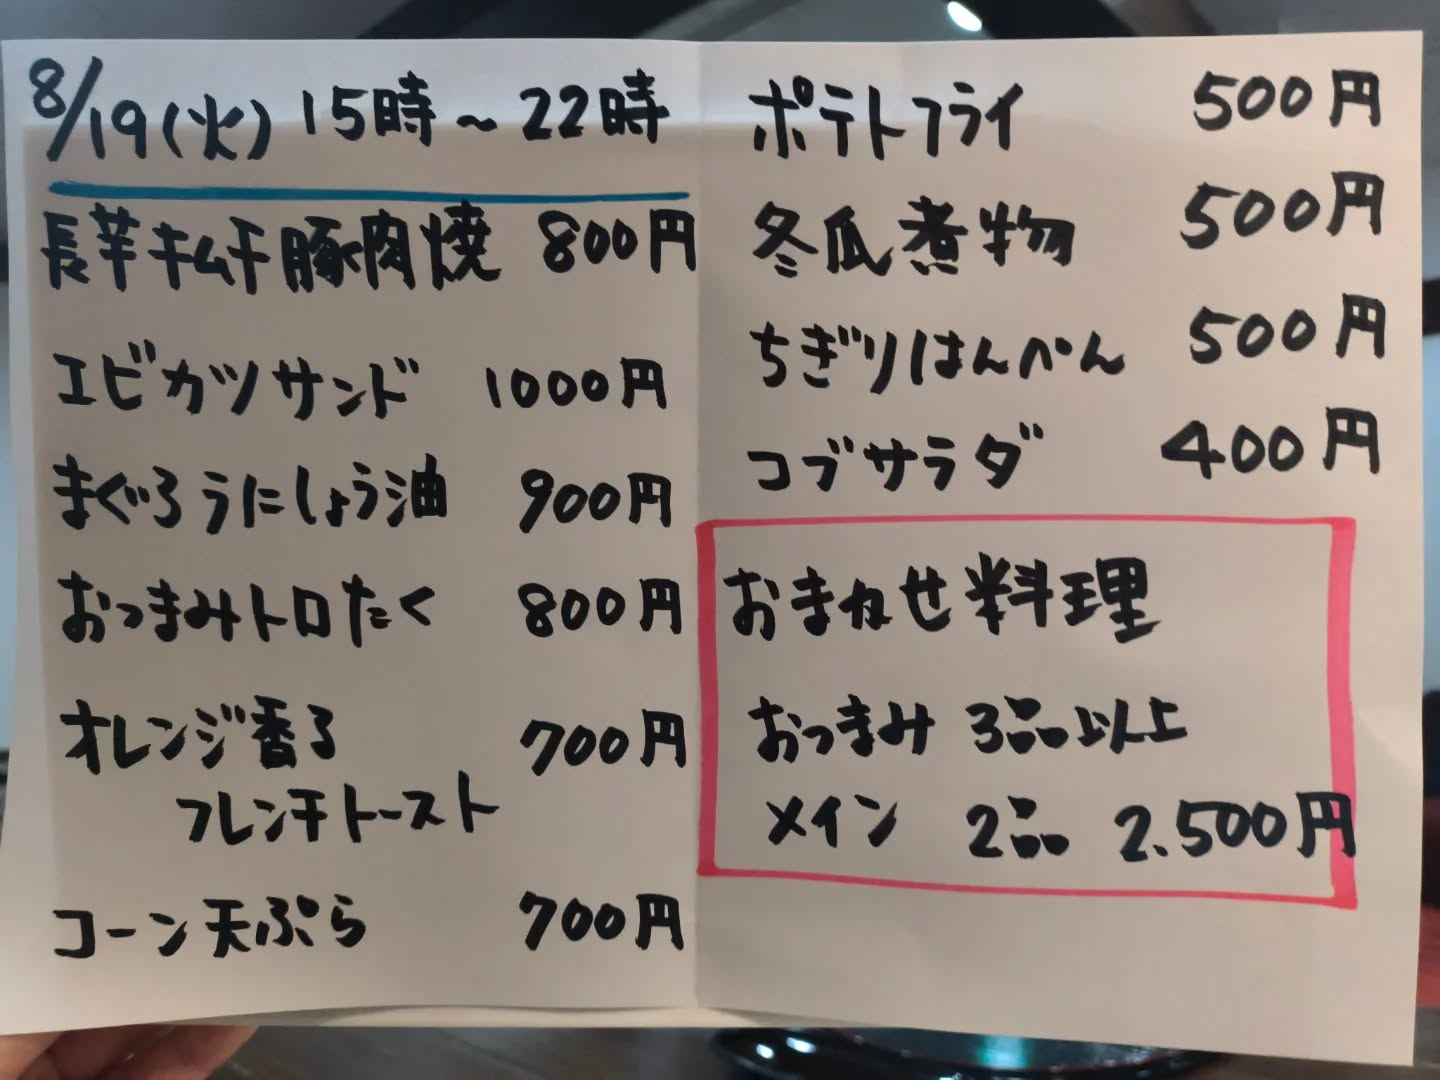 8/19(火) 15時~22時
長芋キムチ豚肉焼 800円
エビカツサンド 1000円
まぐろうにしょう油 900円
おつまみトロたく 800円
オレンジ香る 700円
フレンチトースト
コーン天ぷら 700円
ポテトフライ 500円
冬瓜煮物 500円
ちぎりはんぺん 500円
コブサラダ 400円
おまかせ料理
おつまみ 3品以上
メイン 2品 2.500円